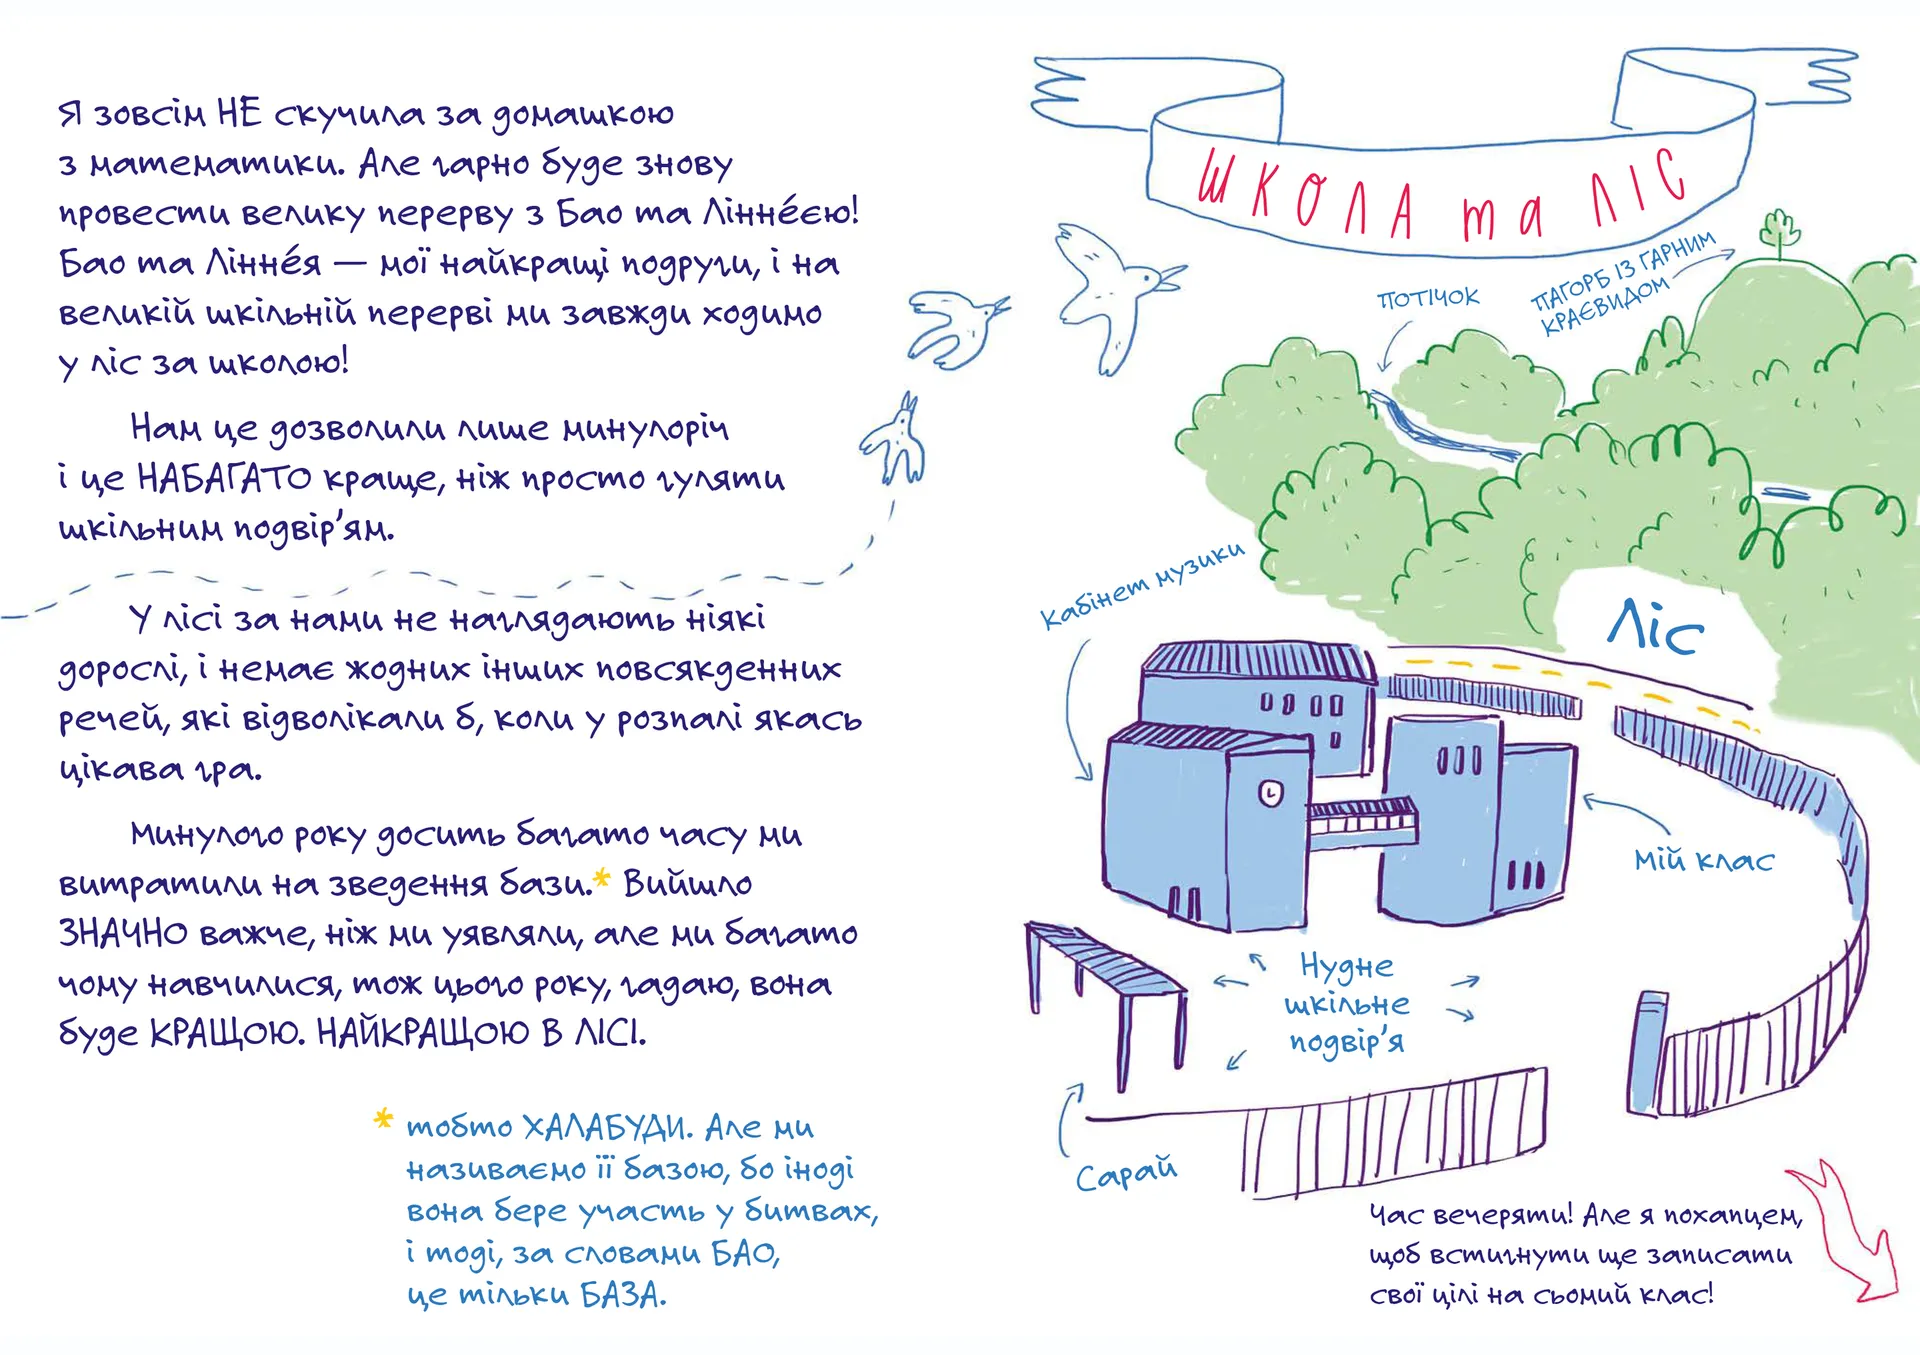 Я зовсім НЕ скучила за домашкою
з математики. Але гарно буде знову
провести велику перерву з Бао та Ліннéєю!
Бао та Ліннéя — мої найкращі подруги, і на
великій шкільній перерві ми завжди ходимо
у ліс за школою!
Нам це дозволили лише минулоріч
і це НАБАГАТО краще, ніж просто гуляти
шкільним подвір’ям.
У лісі за нами не наглядають ніякі
дорослі, і немає жодних інших повсякденних
речей, які відволікали б, коли у розпалі якась
цікава гра.
Минулого року досить багато часу ми
витратили на зведення бази.* Вийшло
ЗНАЧНО важче, ніж ми уявляли, але ми багато
чому навчилися, тож цього року, гадаю, вона
буде КРАЩОЮ. НАЙКРАЩОЮ В ЛІСІ.
* тобто ХАЛАБУДИ. Але ми
називаємо її базою, бо іноді
вона бере участь у битвах,
і тоді, за словами БАО,
це тільки БАЗА.
ШКОЛА та ЛІС
ПОТІЧОК
ПАГОРБ ІЗ ГАРНИМ
КРАЄВИДОМ
Кабінет музики
Ліс
Мій клас
Нудне
шкільне
подвір’я
Сарай
Час вечеряти! Але я похапцем,
щоб встигнути ще записати
свої цілі на сьомий клас!